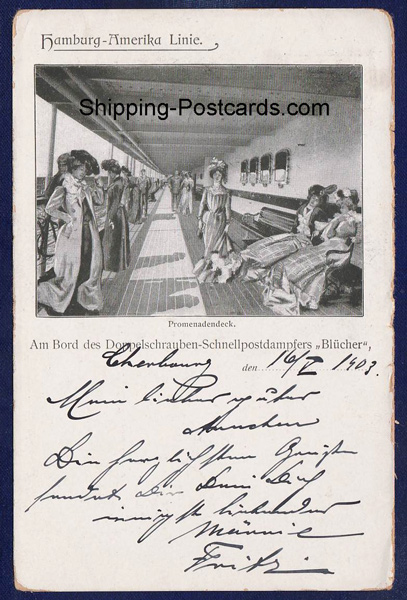 Hamburg-Amerika Linie.
Shipping-Postcards.com
Promenadendeck.
Am Bord des Doppelschrauben-Schnellpostdampfers „Blücher“,
Cherbourg den 16/I 1903.
Mein lieber guter
Die herzlichsten
sendet Dir Dein Dich
innigst liebender
Männe
Fritz